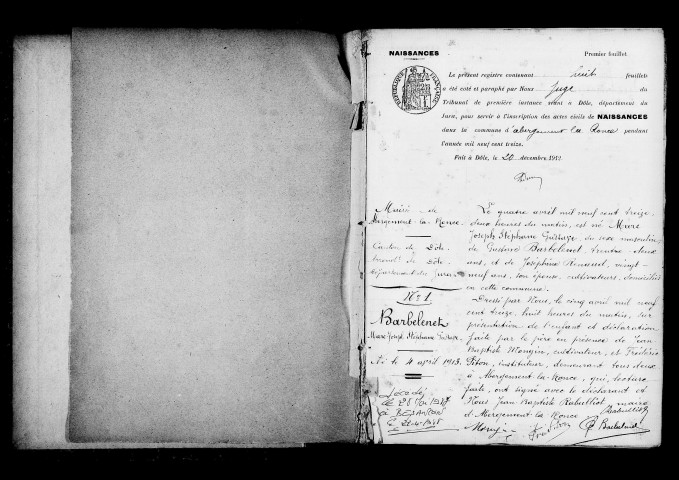 NAISSANCES
Premier feuillet.
RÉPUBLIQUE FRANÇAISE
Le présent registre contenant huit feuillets
a été coté et paraphé par Nous Juge du
Tribunal de première instance séant à Dôle, département du
Jura, pour servir à l'inscription des actes civils de NAISSANCES
dans la commune d'abergement la Ronce pendant
l'année mil neuf cent treize.
Fait à Dôle, le 20 décembre 1912.
Mairie de
Abergement-la-Ronce
Canton de Dôle
de Dôle
département du Jura
No 1
Barbelenet
Marc Joseph Stéphane Gustave
Né le 4 avril 1913.
décédé
à BESANCON
Le quatre avril mil neuf cent treize,
deux heures du matin, est né Marc
Joseph Stéphane Gustave, du sexe masculin,
de Gustave Barbelenet, trente deux
ans, et de Joséphine Renaud, vingt-
neuf ans, son épouse, cultivateurs, domiciliés
en cette commune.
Dressé par Nous, le cinq avril mil neuf
cent treize, huit heures du matin, sur
présentation de l'enfant et déclaration
faite par le père en présence de Jean
Baptiste Mongin, cultivateur, et Frédéric
Piton, instituteur, demeurant tous deux
à Abergement-la-Ronce, qui, lecture
faite, ont signé avec le déclarant et
Nous Jean Baptiste Rabuillot, maire
d'Abergement la Ronce
Rabuillot
Mongin
G Barbelenet